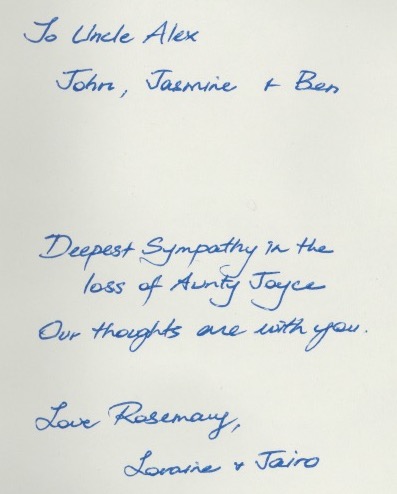 To Uncle Alex
John, Jasmine + Ben
Deepest Sympathy in the
loss of Aunty Joyce
Our thoughts are with you.
Love Rosemary,
Loraine + Jairo